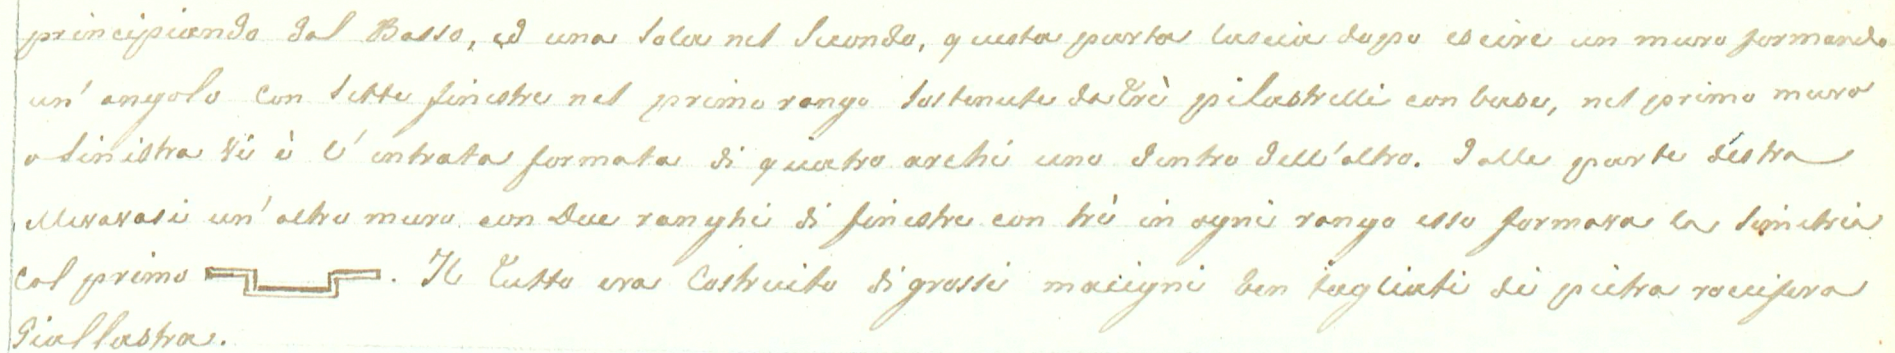 principiando dal Basso, ed una sola nel Secondo, questa parta lascia dopo escire un muro formando
un' angolo con Sette finestre nel primo rango Sostenute da Trè pilastrelli con base, nel primo muro
a Sinistra Vi è l' entrata formata di quatro archi uno dentro dell'altro. Dalle parte déstra
Miravasi un' altro muro con Due ranghi di finestre con trè in ogni rango esso formava la Simetria
Col primo . Il Tutto era Costruito di grossi macigni ben tagliati di pietra rocifera
Giallastra.